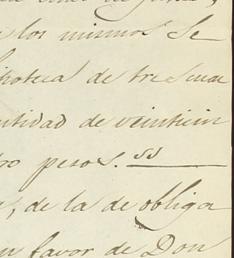 los mismos Se
de tres mue
ntidad de veinticin
ro pesos. ss
, de la de obliga
favor de Don